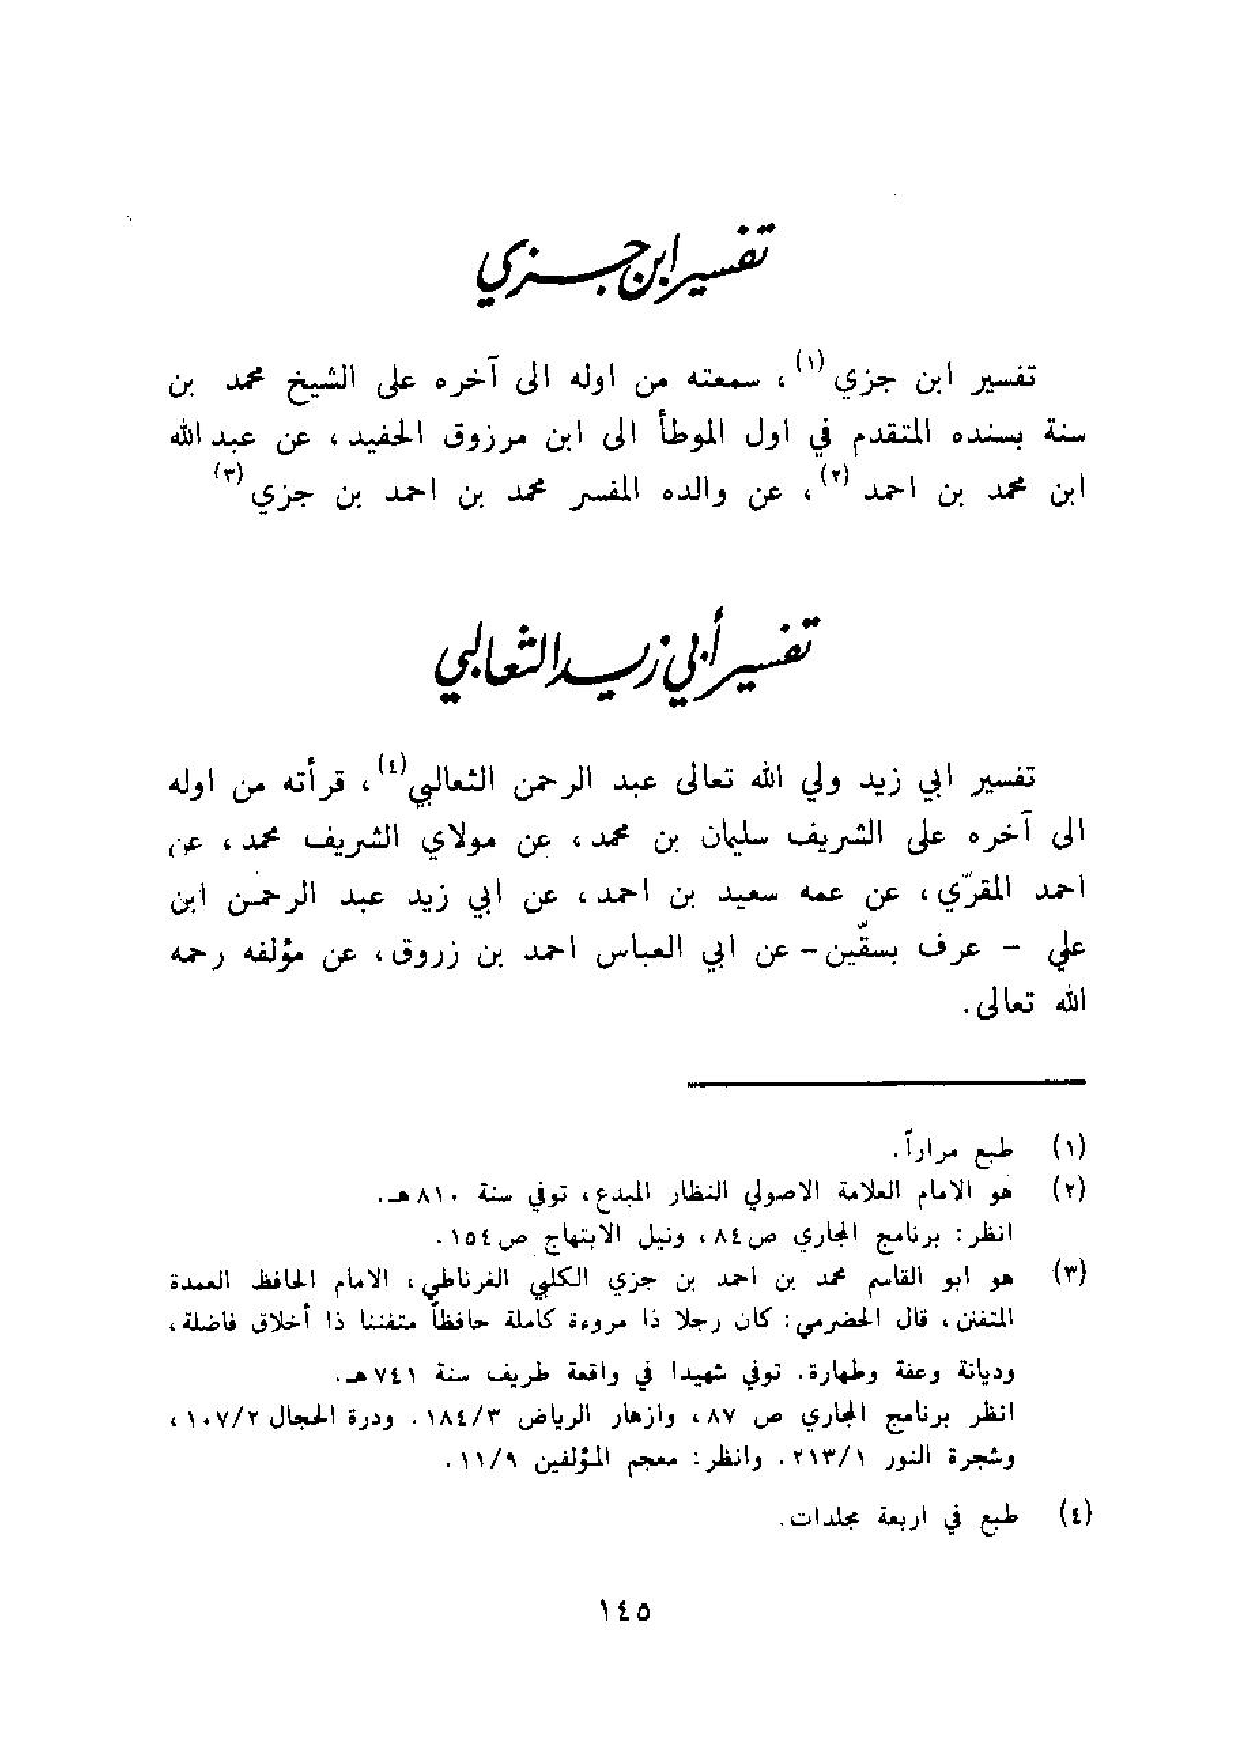 تفسير ابن جزي
تفسير ابن جزي(١)، سمعته من اوله الى آخره على الشيخ محمد بن
سنة بسنده المتقدم في اول الموطأ الى ابن مرزوق الحفيد، عن عبد الله
ابن محمد بن احمد(٢)، عن والده المفسر محمد بن احمد بن جزي(٣)
تفسير أبي زيد الثعالبي
تفسير ابي زيد ولي الله تعالى عبد الرحمن الثعالبي(٤)، قرأته من اوله
الى آخره على الشريف سليمان بن محمد، عن مولاي الشريف محمد، عن
احمد المقرّي، عن عمه سعيد بن احمد، عن ابي زيد عبد الرحمن ابن
علي - عرف بسقّين - عن ابي العباس احمد بن زروق، عن مؤلفه رحمه
الله تعالى.
(١) طبع مراراً.
(٢) هو الامام العلامة الاصولي النظار المبدع، توفي سنة ٨١٠ هـ.
انظر: برنامج المجاري ص٨٤، ونيل الابتهاج ص١٥٤.
(٣) هو ابو القاسم محمد بن احمد بن جزي الكلبي الغرناطي، الامام الحافظ العمدة
المتفنن، قال الحضرمي: كان رجلا ذا مروءة كاملة حافظاً متفننا ذا أخلاق فاضلة،
وديانة وعفة وطهارة. توفي شهيدا في واقعة طريف سنة ٧٤١ هـ.
انظر برنامج المجاري ص ٨٧، وازهار الرياض ١٨٤/٣. ودرة الحجال ١٠٧/٢،
وشجرة النور ٢١٣/١. وانظر: معجم المؤلفين ١١/٩.
(٤) طبع في اربعة مجلدات.
١٤٥